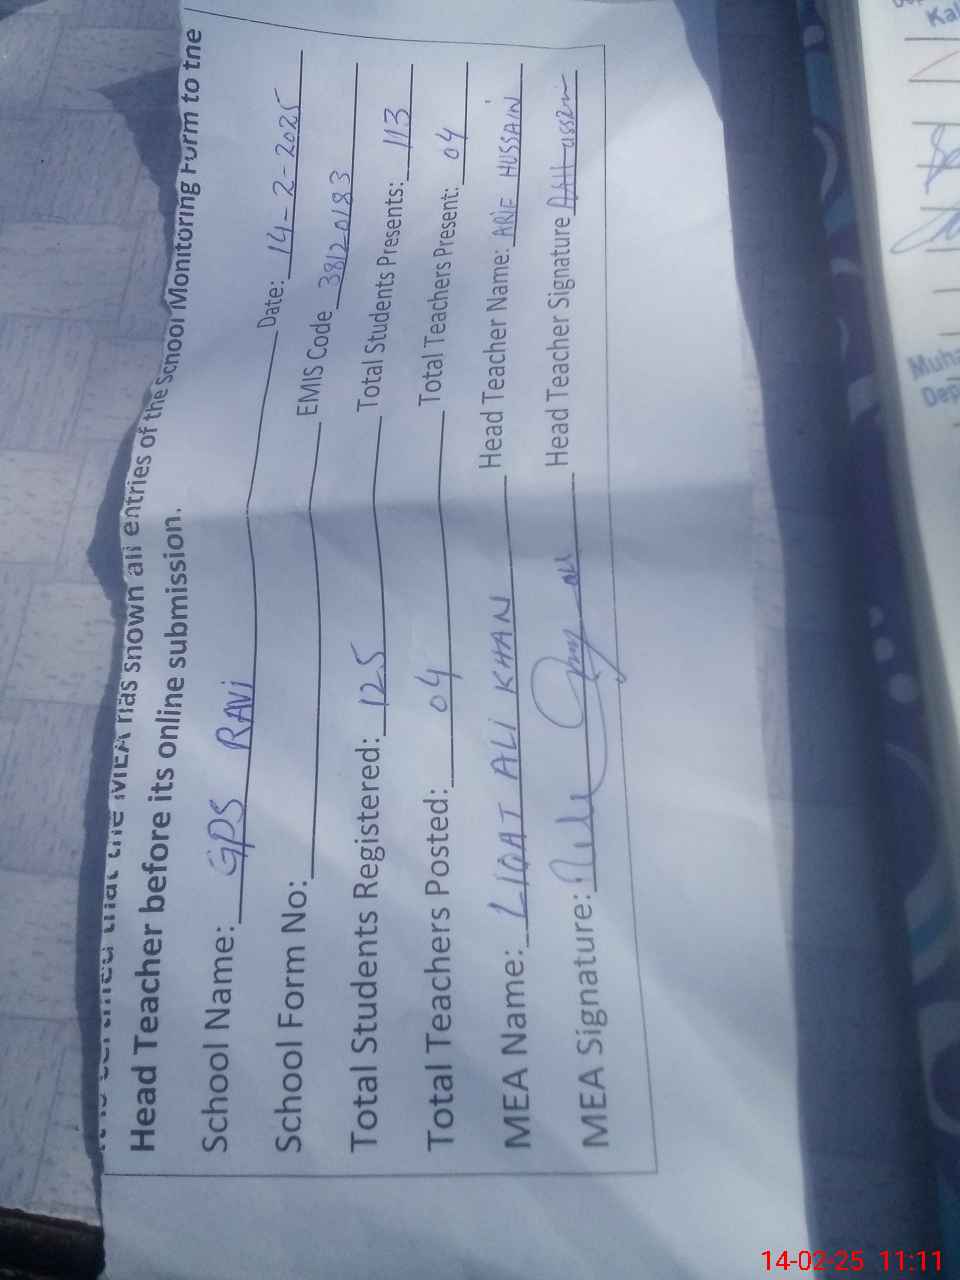 It is certified that the MEA has shown all entries of the School Monitoring Form to the
Head Teacher before its online submission.
School Name: GPS RAVI Date: 14-2-2025
School Form No: EMIS Code 38120183
Total Students Registered: 125 Total Students Presents: 113
Total Teachers Posted: 04 Total Teachers Present: 04
MEA Name: LIQAT ALI KHAN Head Teacher Name: ARIF HUSSAIN
MEA Signature: Head Teacher Signature
Kal
Muha
Dep
14-02-25 11:11